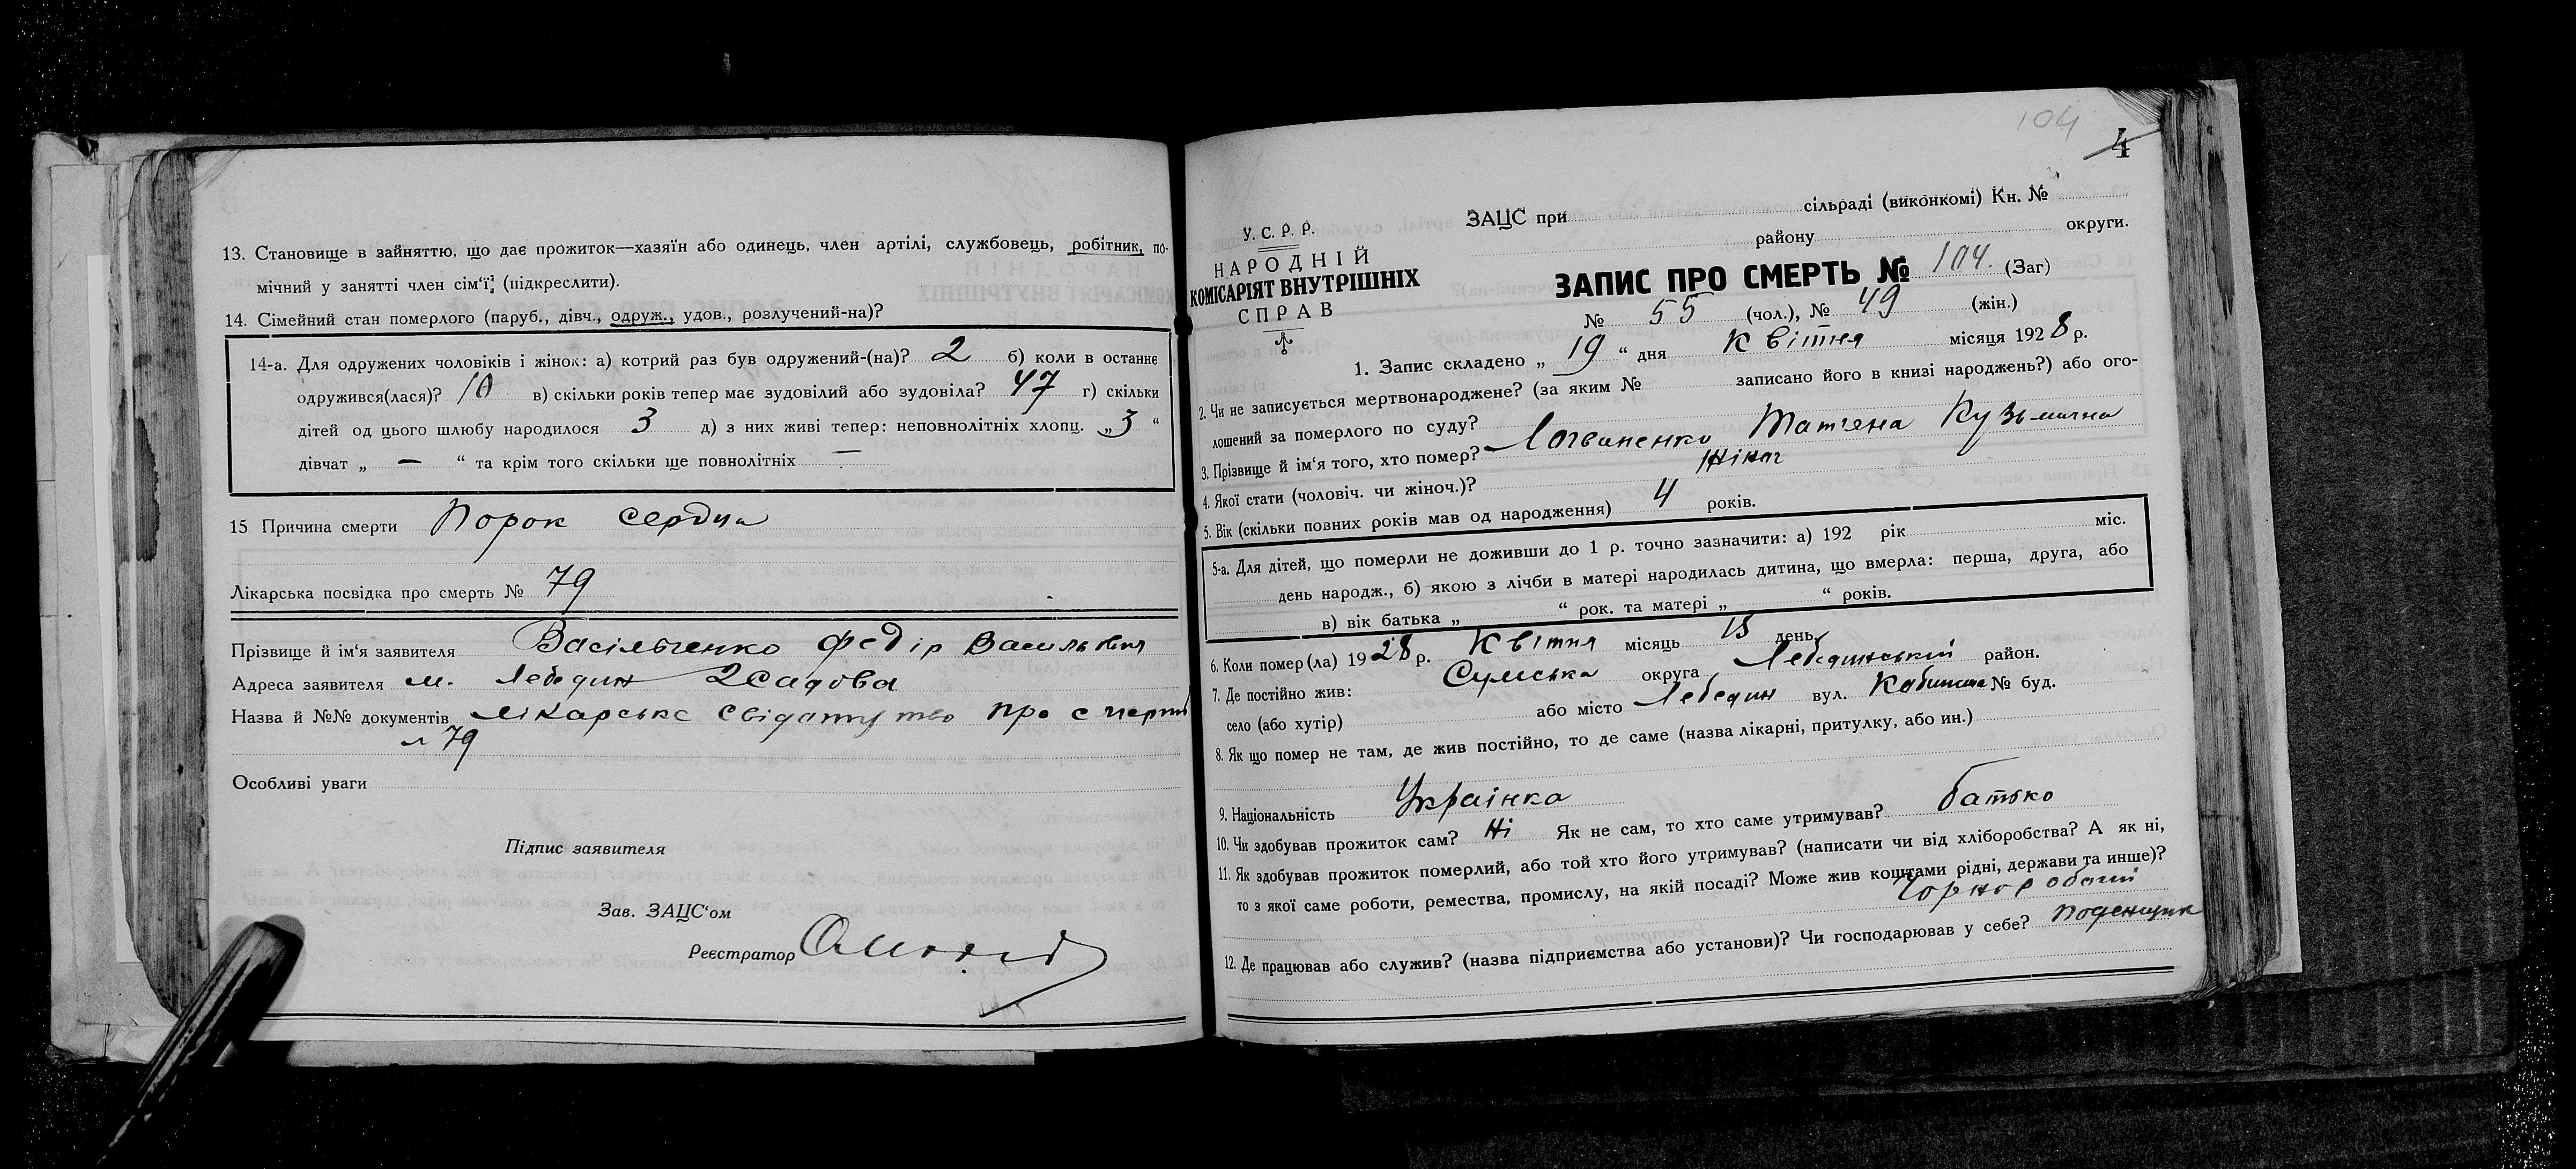 13. Становище в зайняттю, що дає прожиток—хазяїн або одинець, член артілі, службовець, робітник, по-
мічний у занятті член сім‘ї; (підкреслити).
14. Сімейний стан померлого (паруб., дівч., одруж., удов., розлучений-на)?
14-а. Для одружених чоловіків і жінок: а) котрий раз був одружений-(на)? 2 б) коли в останнє
одружився(лася)? 10 в) скільки років тепер має зудовілий або зудовіла? 47 г) скільки
дітей од цього шлюбу народилося 3 д) з них живі тепер: неповнолітніх хлопц. „ 3 “
дівчат „ — “ та крім того скільки ще повнолітніх —
15 Причина смерти Порок сердца
Лікарська посвідка про смерть № 79
Прізвище й ім‘я заявителя Васільченко Федір Васильович
Адреса заявителя м. Лебедин 2 Садова
Назва й №№ документів лікарське свідатутво про смерть
79
Особливі уваги
Підпис заявителя
Зав. ЗАЦС‘ом
Реєстратор
104
4
У. С. Р. Р.
НАРОДНІЙ
КОМІСАРІЯТ ВНУТРІШНІХ
СПРАВ
ЗАЦС при сільраді (виконкомі) Кн. №
району округи.
ЗАПИС ПРО СМЕРТЬ № 104. (Заг)
№ 55 (чол.), № 49 (жін.)
1. Запис складено „ 19 “ дня Квітня місяця 1928 р.
2. Чи не записується мертвонароджене? (за яким № записано його в книзі народжень?) або ого-
лошений за померлого по суду?
3. Прізвище й ім‘я того, хто помер? Логвиненко Тат'яна Кузьмична
4. Якої статі (чоловіч. чи жіноч.)? жіноч
5. Вік (скільки повних років мав од народження) 4 років.
5-а. Для дітей, що померли не доживши до 1 р. точно зазначити: а) 192 рік міс.
день народж., б) якою з лічби в матері народилась дитина, що вмерла: перша, друга, або
в) вік батька „ “ рок. та матері „ “ років.
6. Коли помер(ла) 1928 р. Квітня місяць день.
7. Де постійно жив: Сумська округа Лебединський район.
село (або хутір) або місто Лебедин вул. № буд.
8. Як що помер не там, де жив постійно, то де саме (назва лікарні, притулку, або ин.)
9. Національність Українка
10. Чи здобував прожиток сам? Ні Як не сам, то хто саме утримував? батько
11. Як здобував прожиток померлий, або той хто його утримував? (написати чи від хліборобства? А як ні,
то з якої саме роботи, ремества, промислу, на якій посаді? Може жив коштами рідні, держави та инше)?
Чорноробочий
12. Де працював або служив? (назва підприємства або установи)? Чи господарював у себе? поденщик